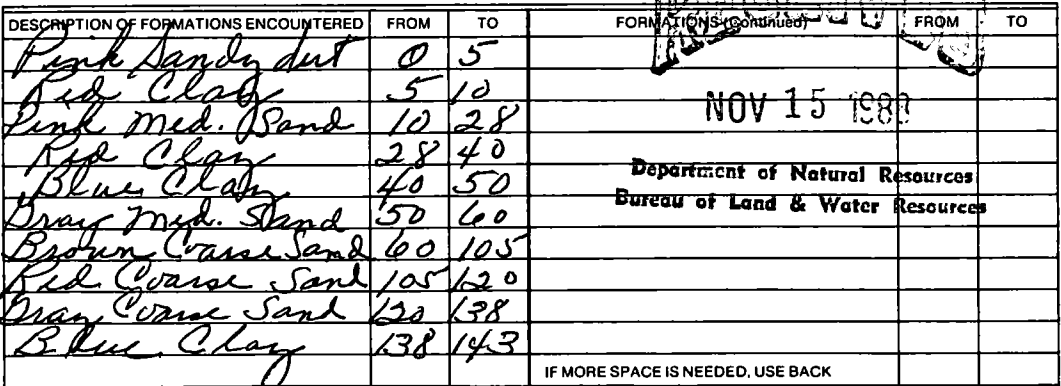 DESCRIPTION OF FORMATIONS ENCOUNTERED FROM TO FORMATIONS (Continued) FROM TO
Pink Sandy dirt 0 5
Red Clay 5 10
Pink Med. Sand 10 28
Red Clay 28 40
Blue Clay 40 50
Gray Med. Sand 50 60
Brown Coarse Sand 60 105
Red Coarse Sand 105 120
Gray Coarse Sand 120 138
Blue Clay 138 143
NOV 15 198
Department of Natural Resources
Bureau of Land & Water Resources
IF MORE SPACE IS NEEDED, USE BACK